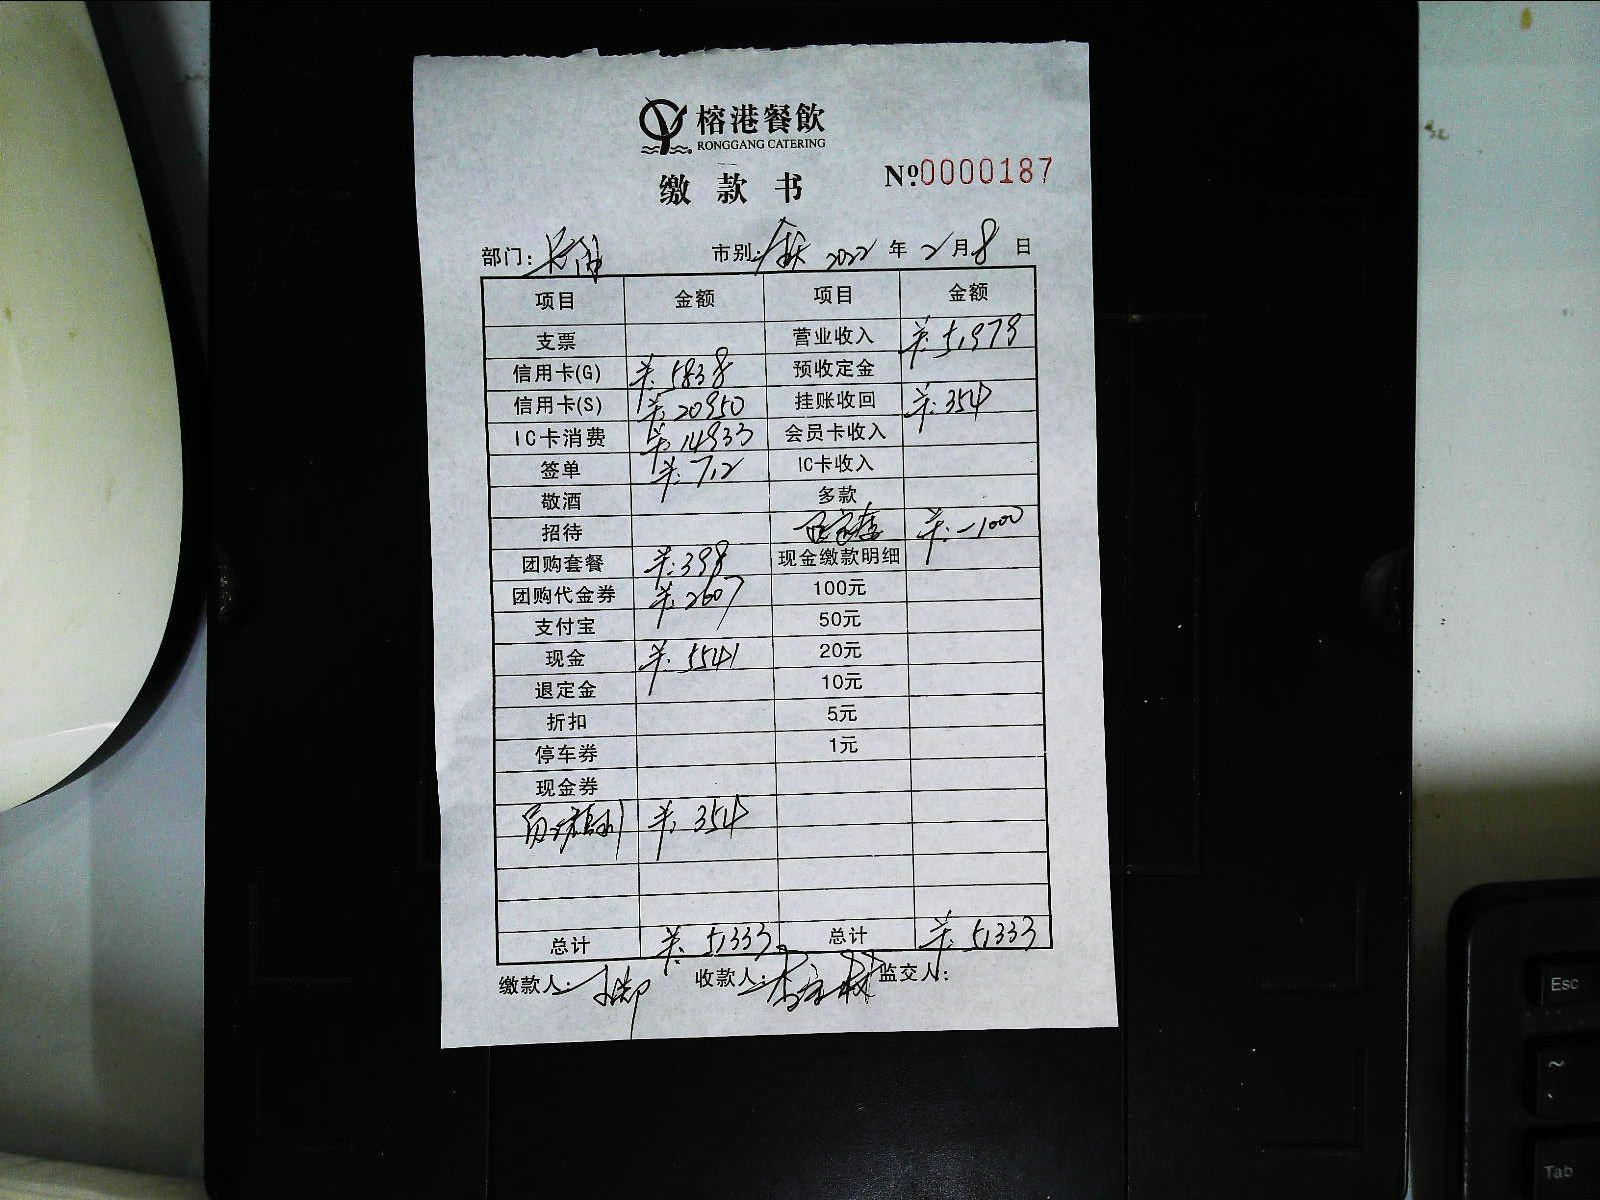 榕港餐飲
RONGGANG CATERING
No.0000187
缴款书
部门: 市别: 2022 年 2 月 8 日
项目 金额 项目 金额
支票 营业收入 羊: 51979
信用卡(G) 羊: 5838 预收定金
信用卡(S) 羊: 20950 挂账收回 羊: 354
IC卡消费 羊: 14933 会员卡收入
签单 羊: 712 IC卡收入
敬酒 多款
招待 羊: -1000
团购套餐 羊: 398 现金缴款明细
团购代金券 羊: 2607 100元
支付宝 50元
现金 羊: 5541 20元
退定金 10元
折扣 5元
停车券 1元
现金券
羊: 354
总计 羊: 51333 总计 羊: 51333
缴款人: 收款人: 监交人:
Esc
~
Tab